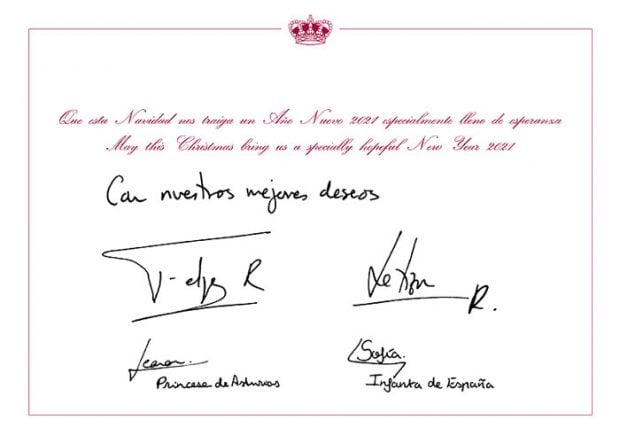 Que esta Navidad nos traiga un Año Nuevo 2021 especialmente lleno de esperanza
May this Christmas bring us a specially hopeful New Year 2021
Con nuestros mejores deseos
Felipe R Letizia R.
Leonor Sofía.
Princesa de Asturias Infanta de España